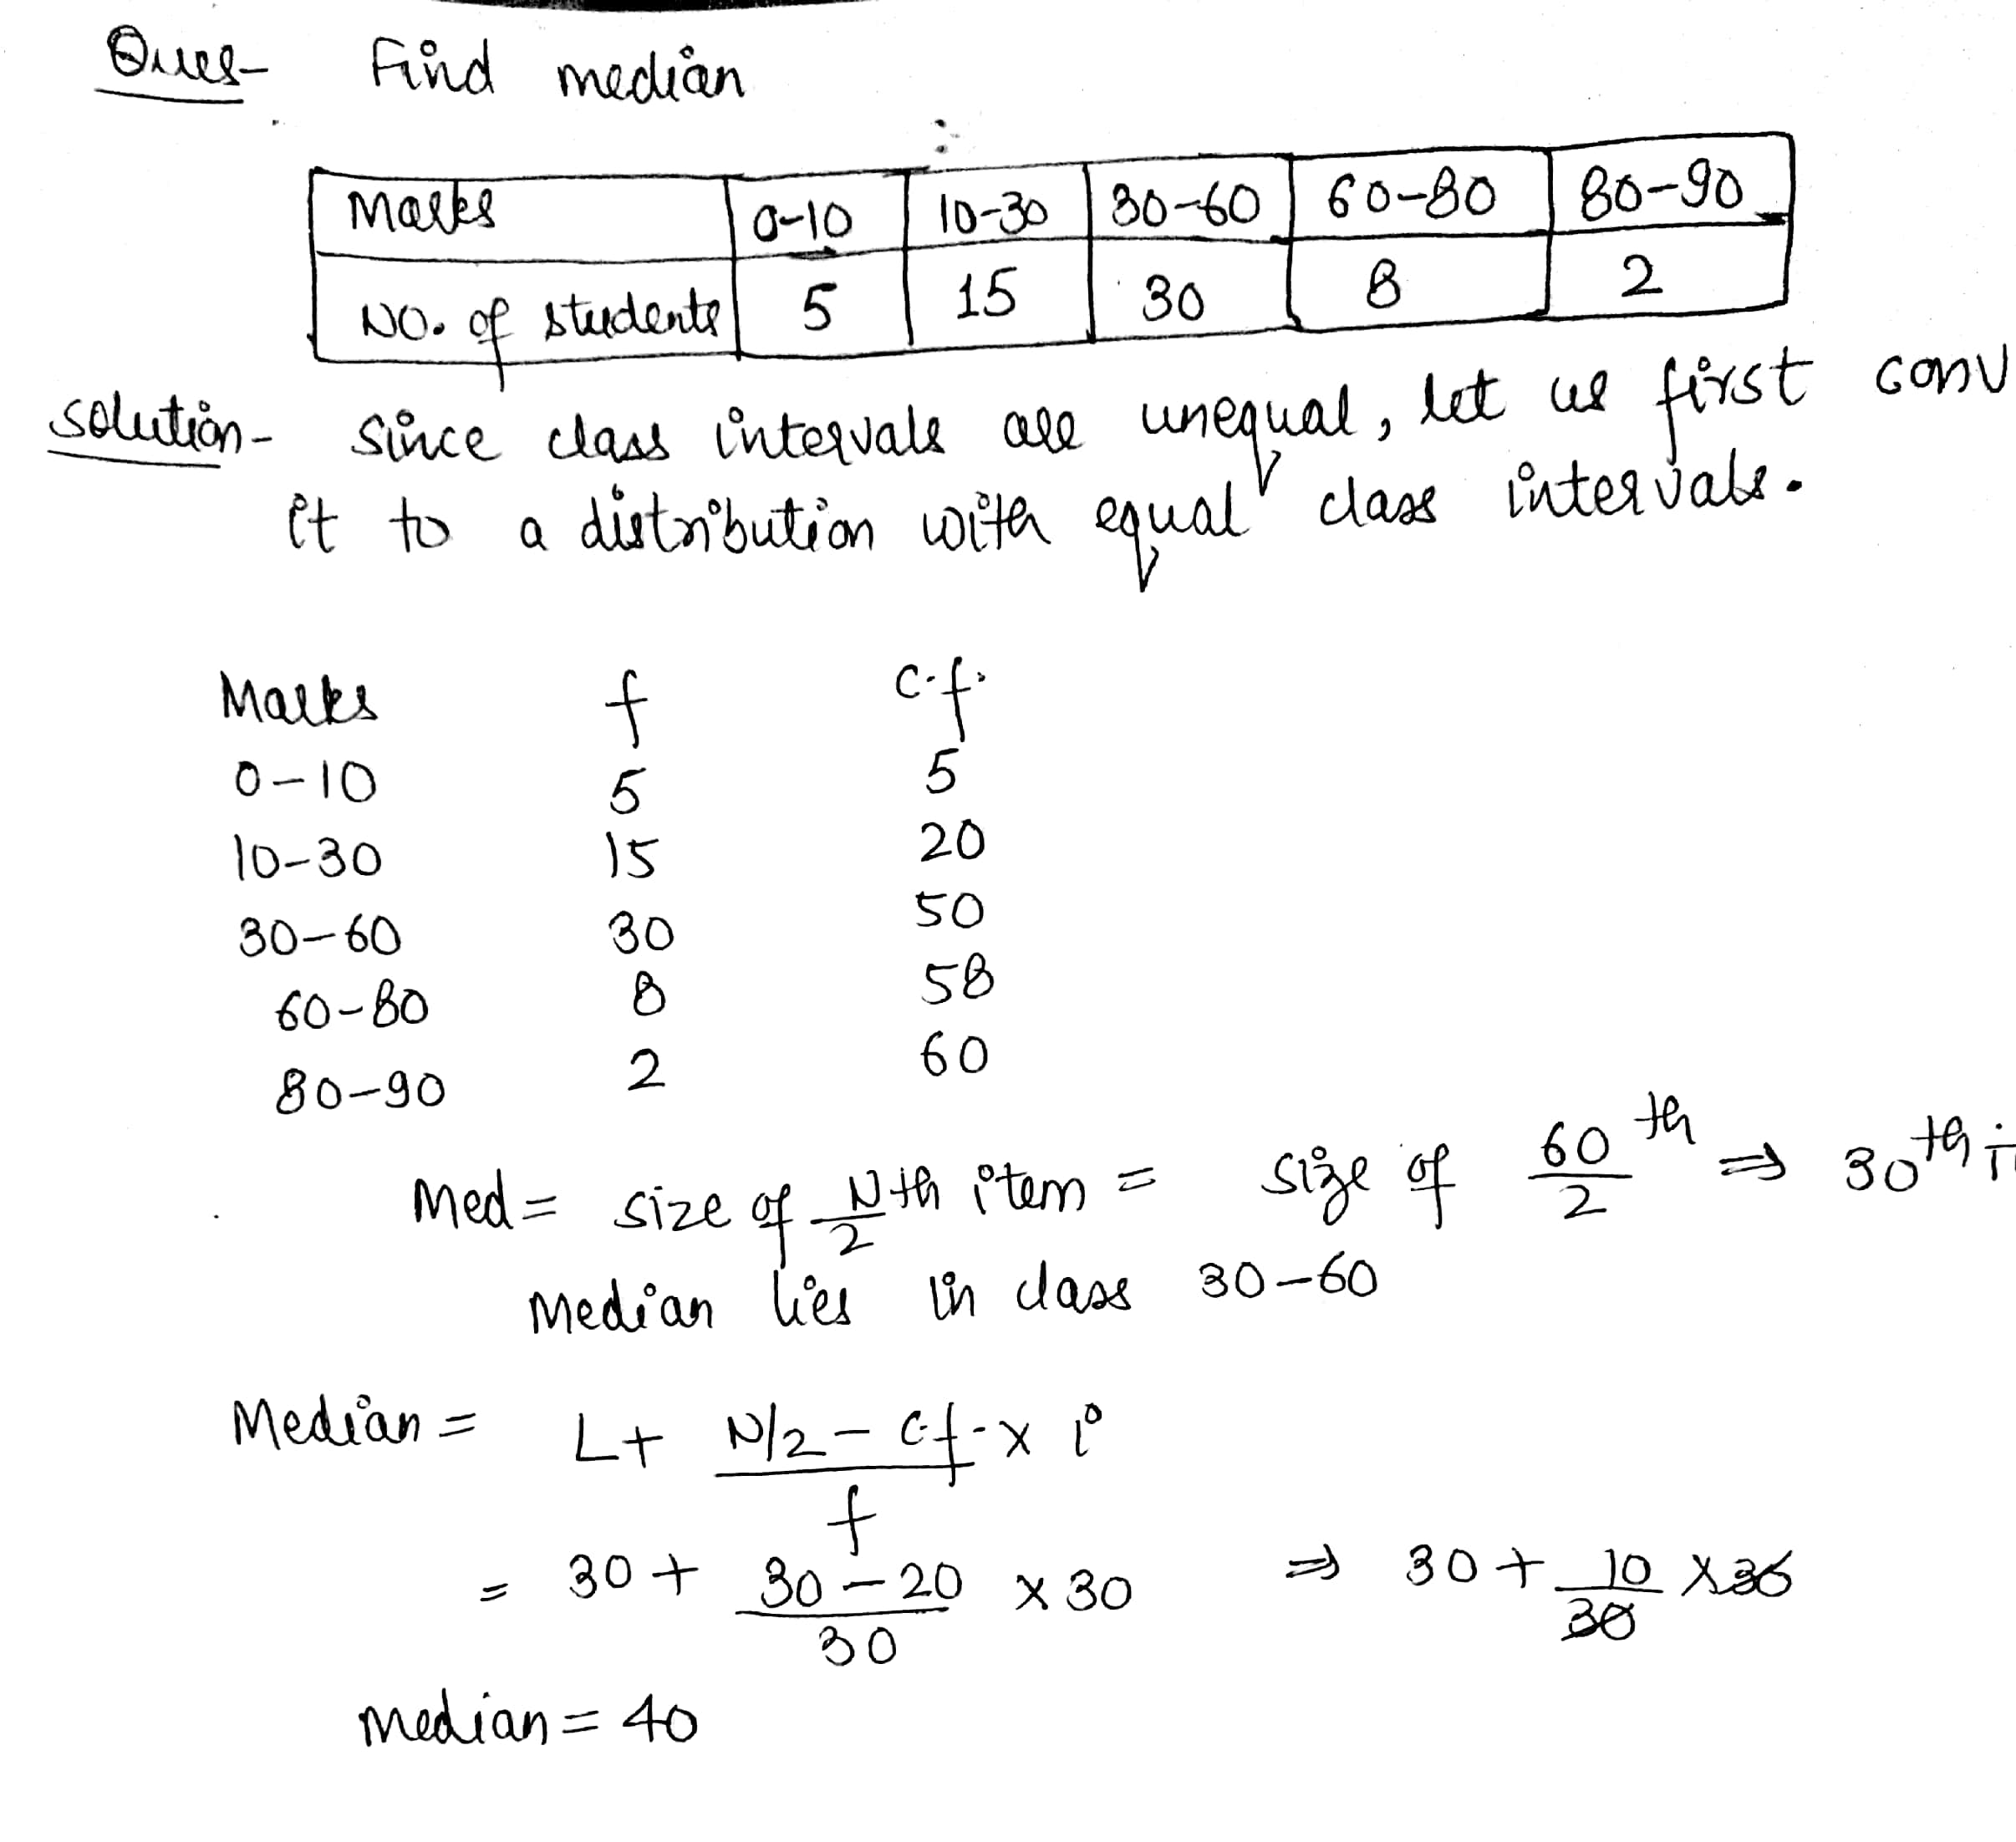 Ques- Find median
Marks 0-10 10-30 30-60 60-80 80-90
NO. of students 5 15 30 8 2
Solution- Since class intervals are unequal, let us first conv
it to a distribution with equal class intervals.
Marks f c.f.
0-10 5 5
10-30 15 20
30-60 30 50
60-80 8 58
80-90 2 60
Med = size of N/2 th item = size of 60/2 th ⇒ 30th
Median lies in class 30-60
Median = L + N/2 - c.f. / f × i
= 30 + 30 - 20 / 30 × 30 ⇒ 30 + 10 / 30 × 30
Median = 40